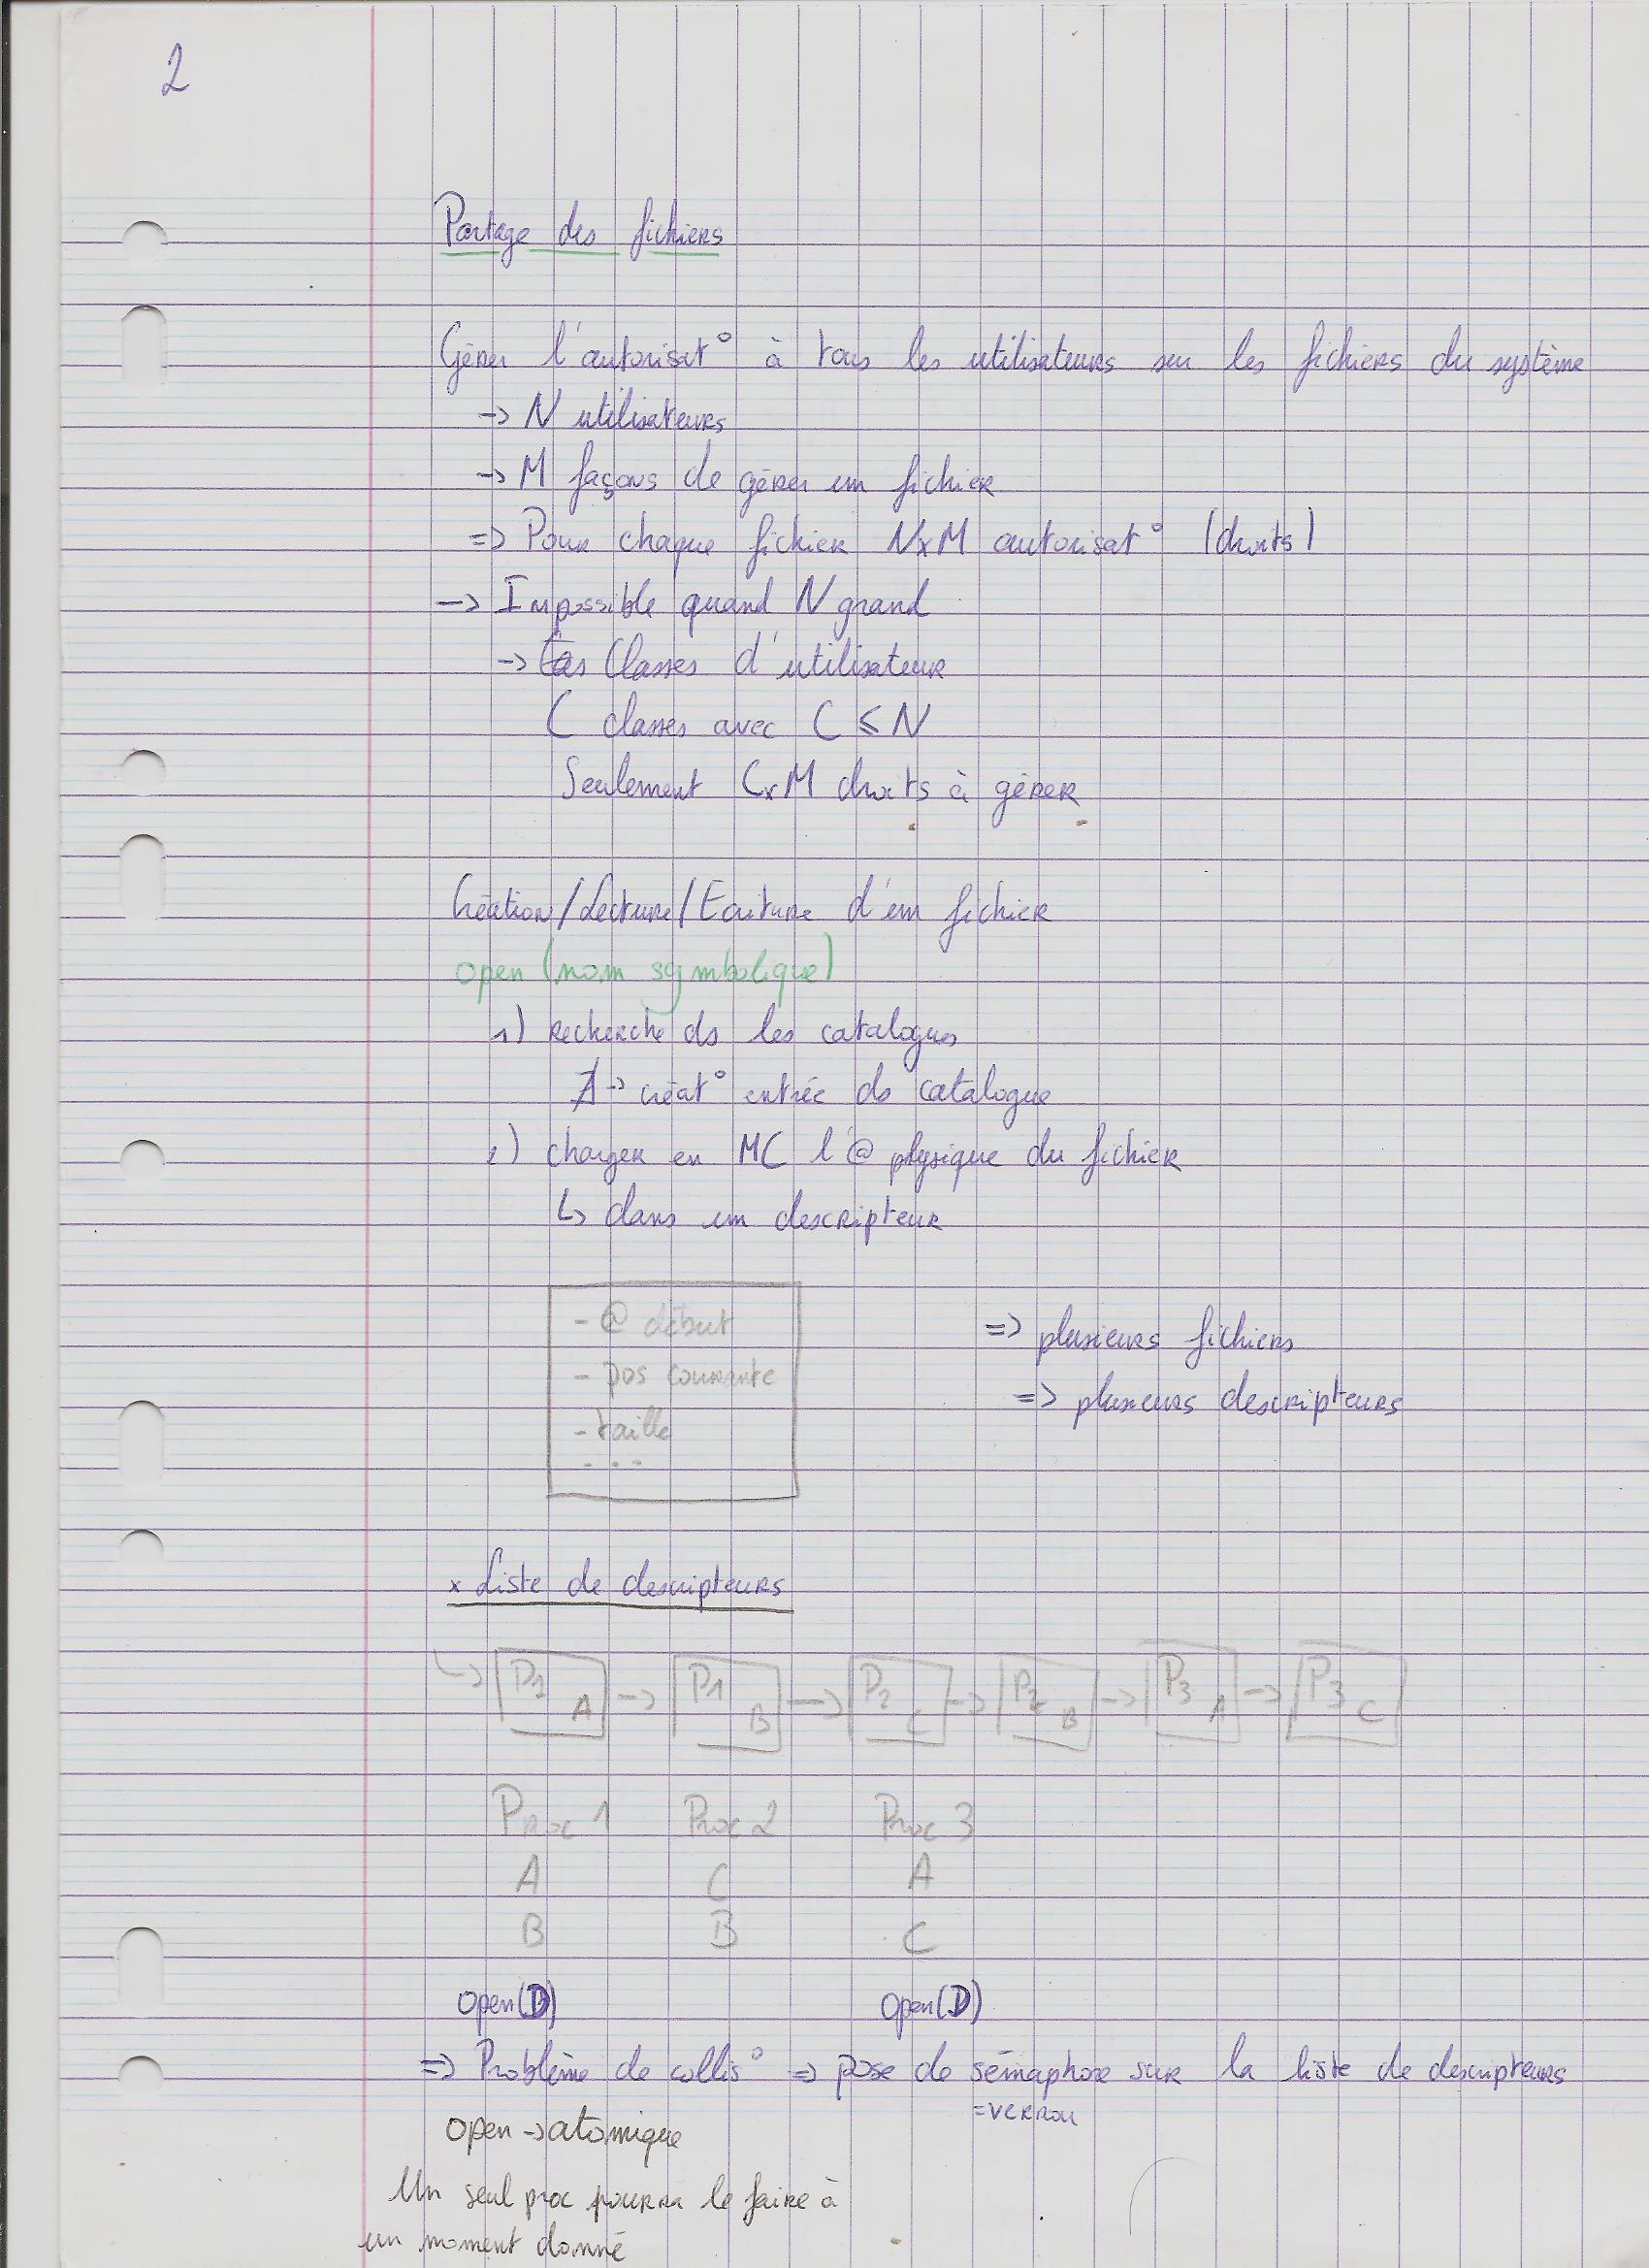 2
Partage des fichiers
Gérer l'autorisat° à tous les utilisateurs sur les fichiers du système
-> N utilisateurs
-> M façons de gérer un fichier
=> Pour chaque fichier NxM autorisat° (droits)
-> Impossible quand N grand
-> Classes d'utilisateur
C classes avec C ≤ N
Seulement CxM droits à gérer
Création/Lecture/Ecriture d'un fichier
open (nom symbolique)
1) recherche ds les catalogues
∄ -> créat° entrée ds catalogue
2) charger en MC l'@ physique du fichier
↳ dans un descripteur
- @ début
- pos courante
- taille
...
=> plusieurs fichiers
=> plusieurs descripteurs
x Liste de descripteurs
↳ P1 A -> P1 B -> P2 C -> P2 B -> P3 A -> P3 C
Proc 1 Proc 2 Proc 3
A C A
B B C
open(D) open(D)
=> Problème de collis° => pose de sémaphore sur la liste de descripteurs
= verrou
open -> atomique
Un seul proc pourra le faire à
un moment donné